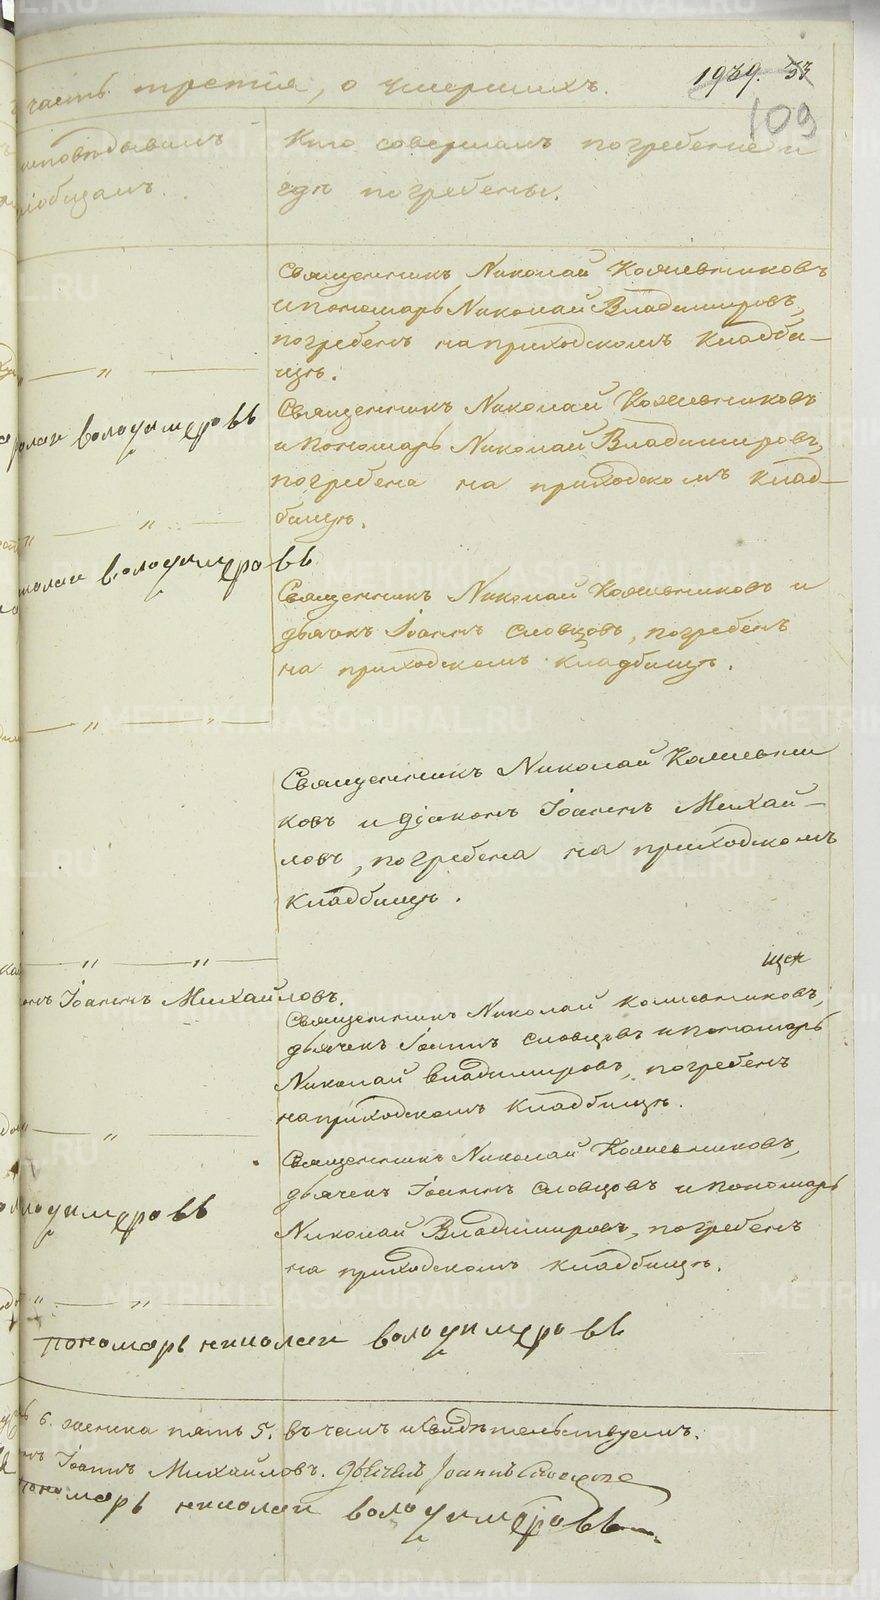 часть третия, о умершихъ.
1939. 33
109
исповѣдывалъ
пріобщалъ.
Кто совершалъ погребеніе и
гдѣ погребены.
Священникъ Николай Кожевниковъ
и пономарь Николай Владимировъ,
погребенъ на приходскомъ кладби-
щѣ.
Священникъ Николай Кожевниковъ
и пономарь Николай Владимировъ,
погребена на приходскомъ клад-
бищѣ.
володимеровъ
Священникъ Николай Кожевниковъ и
дьячекъ Іоаннъ Словцовъ, погребенъ
на приходскомъ кладбищѣ.
володимеровъ
Священникъ Николай Кожевни
ковъ и діаконъ Іоаннъ Михай-
ловъ, погребена на приходскомъ
кладбищѣ.
Іоаннъ Михайловъ.
Священникъ Николай Кожевниковъ,
дьячекъ Іоаннъ Словцовъ и пономарь
Николай Владимировъ, погребенъ
на приходскомъ кладбищѣ.
Священникъ Николай Кожевниковъ,
дьячекъ Іоаннъ Словцовъ и пономарь
Николай Владимировъ, погребенъ
на приходскомъ кладбищѣ.
володимеровъ
пономарь николаи володимеровъ
6. женска пять 5. въ чемъ и свидѣтельствуемъ.
Іоаннъ Михайловъ. Дьячекъ Іоаннъ Словцовъ
пономарь николаи володимеровъ
METRIKI.GASO-URAL.RU